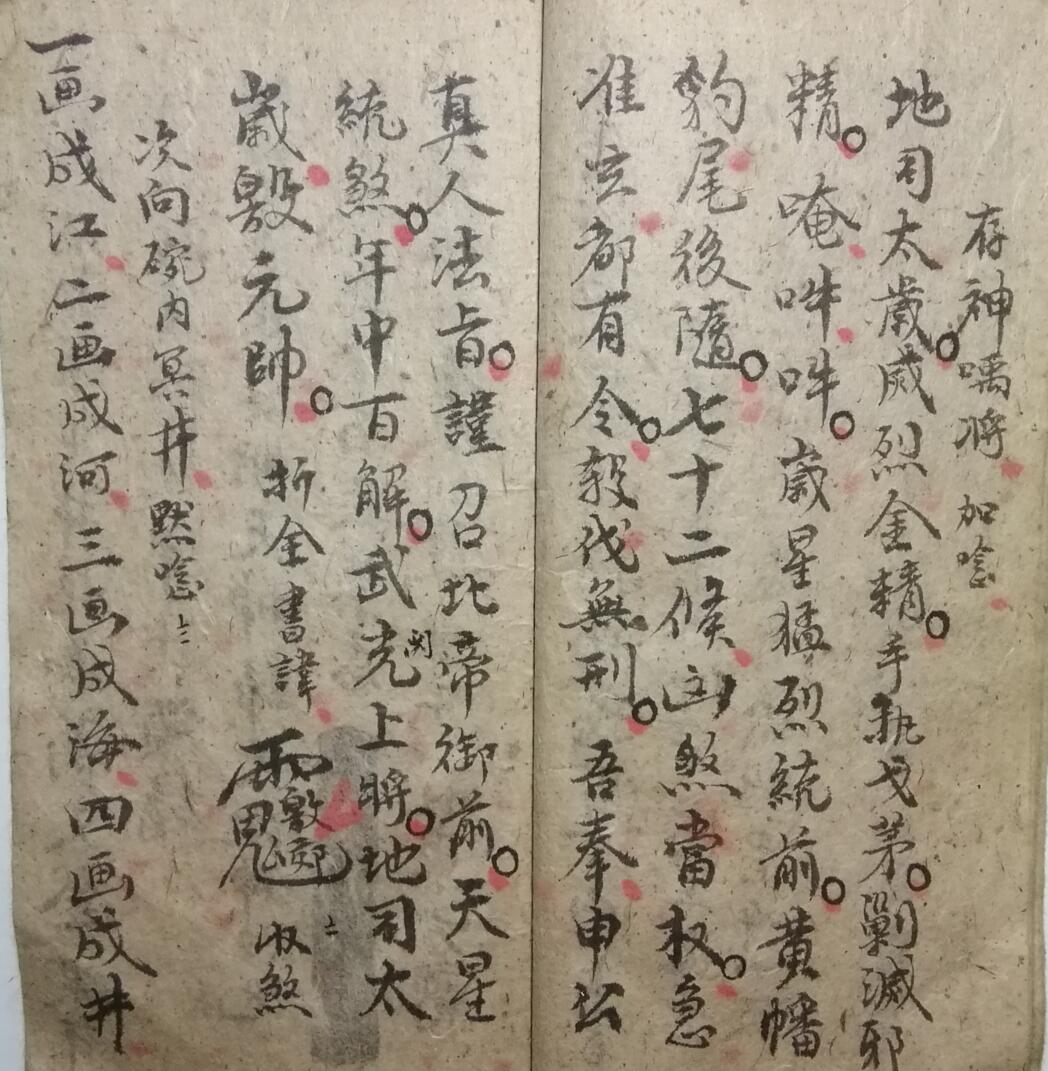 存神嘱将 加唸
地司太歲威烈金精手執戈茅剿滅邪
精唵吽吽歲星猛烈統前黄幡
豹尾後隨七十二候凶煞當权急
准玄都有令殺伐無刑吾奉申公
真人法旨謹召北帝御前天星
統煞年中百解武光上將地司太
歲殷元帥 折全書諱 收煞
次向碗内冥井默唸
一画成江二画成河三画成海四画成井